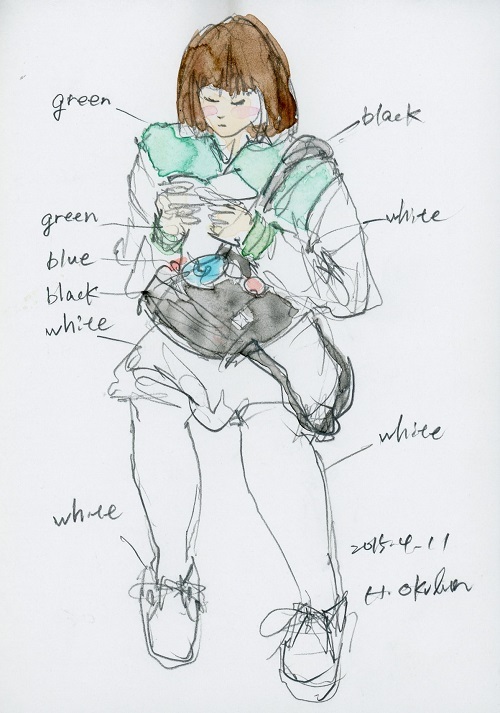 green
black
green
white
blue
black
white
white
white
2015.4.11
H. Okuhara